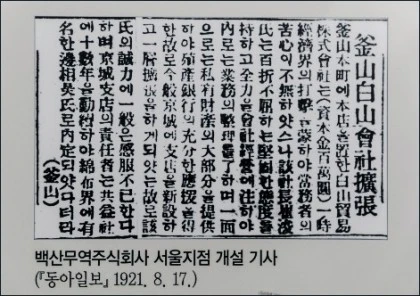 釜山白山會社擴張
釜山本町에本店을置한白山貿易
株式會社는(資本金百萬圓)一時
經濟界의打擊을蒙하야當務者의
苦心이不無하얏스나該社長崔浚
氏는百折不屈하는堅固한態度를
持하고全力을會社經營에注하야
內로는業務의整理를了하며一面
으로는私有財産의大部分을提供
하야殖產銀行의充分한應援을得
한故로今般京城에支店을新設하
고一層擴張을하게되얏는故로該
氏의誠力에一般은感服不已한다
하며京城支店의責任者는共益社
에十數年을勤務하야綿布界에有
名한邊相昊氏로內定되얏다더라
(釜山)
백산무역주식회사 서울지점 개설 기사
(『동아일보』 1921. 8. 17.)